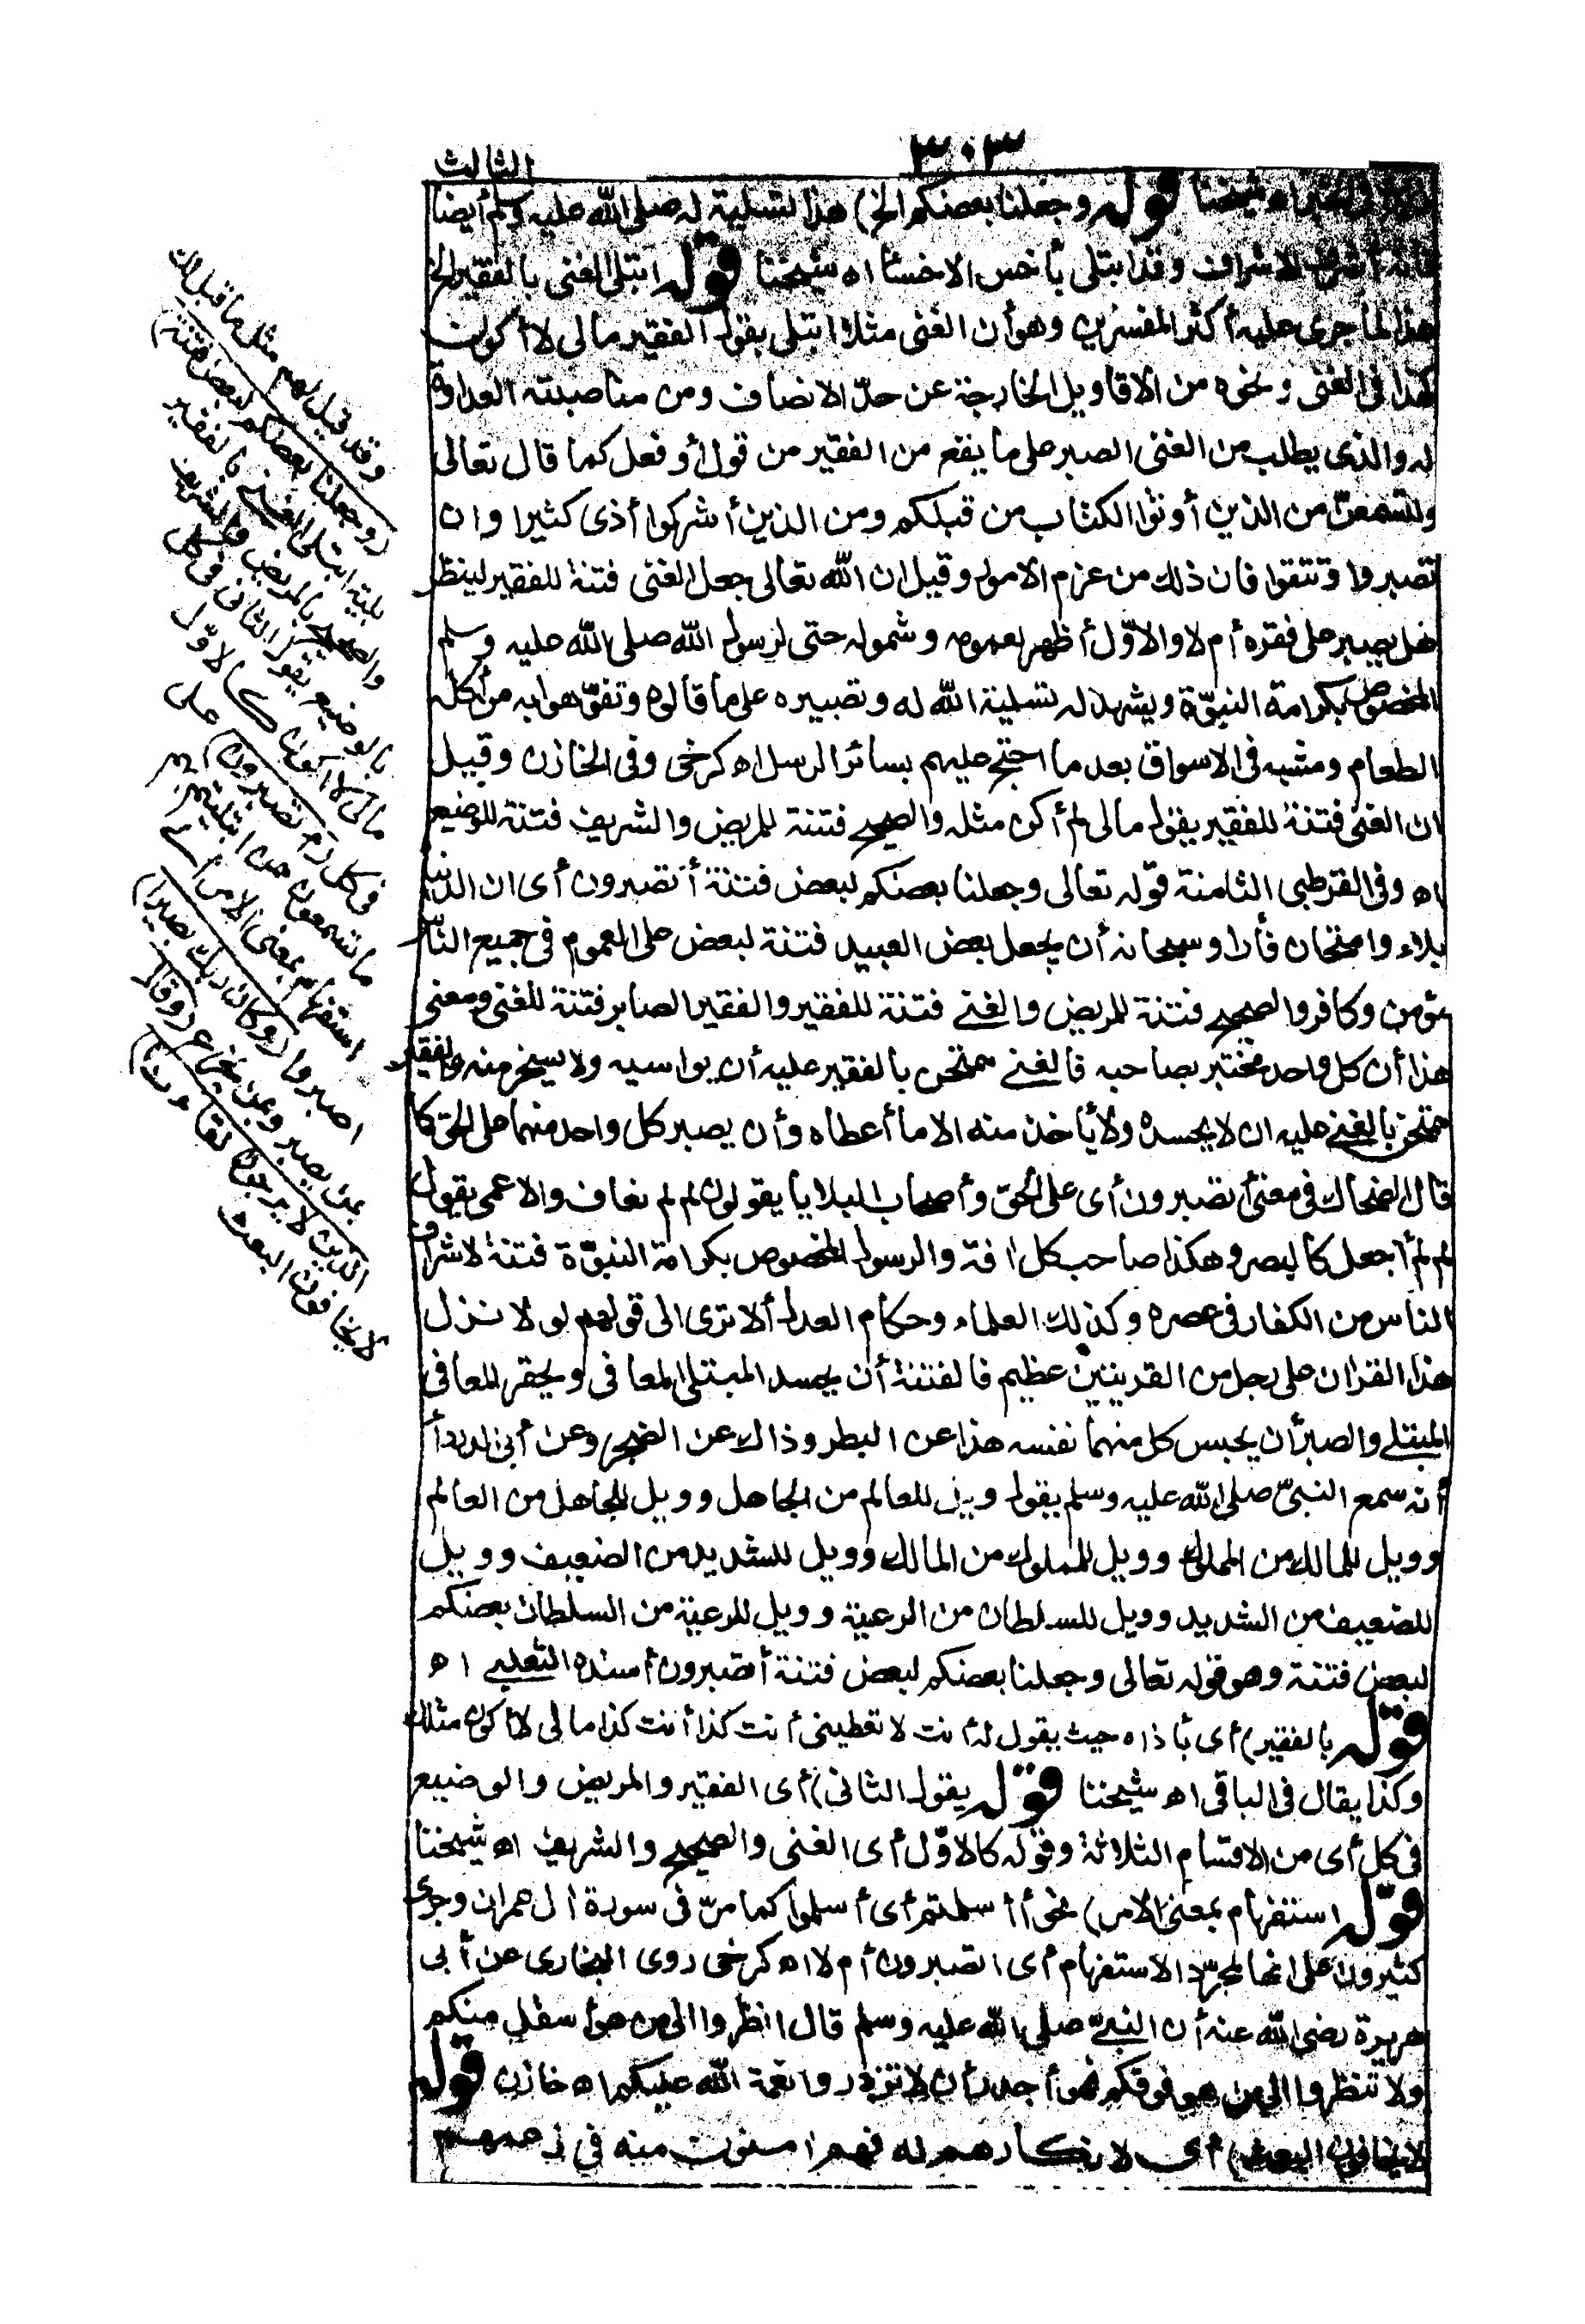 ٣٠٣
الثالث
شيخنا قوله وجعلنا بعضكم الخ) هذا تسلية له صلى الله عليه وسلم أيضا
فانه أشرف الاشراف وقد ابتلى بأخس الاخساء اه شيخنا قوله ابتلى الغنى بالفقير الخ
هذا لما جرى عليه أكثر المفسرين وهو أن الغنى مثلا ابتلى بقول الفقير مالى لا أكون
كهذا فى الغنى ونحوه من الاقاويل الخارجة عن حدّ الانصاف ومن مناصبته العداوة
له والذى يطلب من الغنى الصبر على ما يقع من الفقير من قول أو فعل كما قال تعالى
ولتسمعنّ من الذين أوتوا الكتاب من قبلكم ومن الذين أشركوا أذى كثيرا وان
تصبروا وتتقوا فان ذلك من عزم الامور وقيل ان الله تعالى جعل الغنى فتنة للفقير لينظر
هل يصبر على فقره أم لا والاوّل أظهر لعمومه وشموله حتى لرسول الله صلى الله عليه وسلم
المخصوص بكرامة النبوّة ويشهد له تسلية الله له وتصبيره على ما قالوه وتفوّهوا به من أكله
الطعام ومشيه فى الاسواق بعد ما احتج عليهم بسائر الرسل اه كرخى وفى الخازن وقيل
ان الغنى فتنة للفقير يقول مالى لم أكن مثله والصحيح فتنة للمريض والشريف فتنة للوضيع
اه وفى القرطبى الثامنة قوله تعالى وجعلنا بعضكم لبعض فتنة أتصبرون أى ان الدنيا
بلاء وامتحان فأراد سبحانه أن يجعل بعض العبيد فتنة لبعض على العموم فى جميع الناس
مؤمن وكافر والصحيح فتنة للمريض والغنى فتنة للفقير والفقير الصابر فتنة للغنى ومعنى
هذا أن كل واحد مختبر بصاحبه فالغنى ممتحن بالفقير عليه أن يواسيه ولا يسخر منه والفقير
ممتحن بالغنى عليه ان لا يحسده ولا يأخذ منه الا ما أعطاه وأن يصبر كل واحد منهما على الحق كما
قال الضحاك فى معنى أتصبرون أى على الحق وأصحاب البلايا يقولون لم لم نعاف والاعمى يقول
لم لم أجعل كالبصر وهكذا صاحب كل آفة والرسول المخصوص بكرامة النبوّة فتنة لاشراف
الناس من الكفار فى عصره وكذلك العلماء وحكام العدل ألا ترى الى قولهم لولا نزل
هذا القرآن على رجل من القريتين عظيم فالفتنة أن يحسد المبتلى المعافى ويحقر المعافى
المبتلى والصبر أن يحبس كل منهما نفسه هذا عن البطر وذاك عن الضجر وعن أبى الدرداء
أنه سمع النبىّ صلى الله عليه وسلم يقول ويل للعالم من الجاهل وويل للجاهل من العالم
وويل للمالك من المملوك وويل للمملوك من المالك وويل للشديد من الضعيف وويل
للضعيف من الشديد وويل للسلطان من الرعية وويل للرعية من السلطان بعضكم
لبعض فتنة وهو قوله تعالى وجعلنا بعضكم لبعض فتنة أتصبرون أسنده الثعلبى اه
قوله بالفقير) أى بأذاه حيث يقول له أنت لا تعطينى أنت كذا أنت كذا مالى لا أكون مثلك
وكذا يقال فى الباقى اه شيخنا قوله يقول الثانى) أى الفقير والمريض والوضيع
فى كل أى من الاقسام الثلاثة وقوله كالاوّل أى الغنى والصحيح والشريف اه شيخنا
قوله استفهام بمعنى الامر) نحو أأسلمتم أى أسلموا كما مرّ فى سورة آل عمران وجرى
كثيرون على انها لمجرّد الاستفهام أى اتصبرون أم لا اه كرخى روى البخارى عن أبى
هريرة رضى الله عنه أن النبىّ صلى الله عليه وسلم قال انظروا الى من هو أسفل منكم
ولا تنظروا الى من هو فوقكم فهو أجدر أن لا تزدروا نعمة الله عليكم اه خازن قوله
لا يخافون البعث) أى لانكارهم له فهم آمنون منه فى زعمهم
وقد قيل لهم مثل ما قيل لك
(وجعلنا بعضكم لبعض فتنة)
بلية ابتلى الغنى بالفقير
والصحيح بالمريض والشريف
بالوضيع يقول الثانى فى كل
مالى لا أكون كالاوّل
فى كل (أتصبرون) على
ما تسمعون ممن ابتليتم بهم
استفهام بمعنى الامر أى
اصبروا (وكان ربك بصيرا)
بمن يصبر وبمن يجزع (وقال
الذين لا يرجون لقاءنا)
لا يخافون البعث